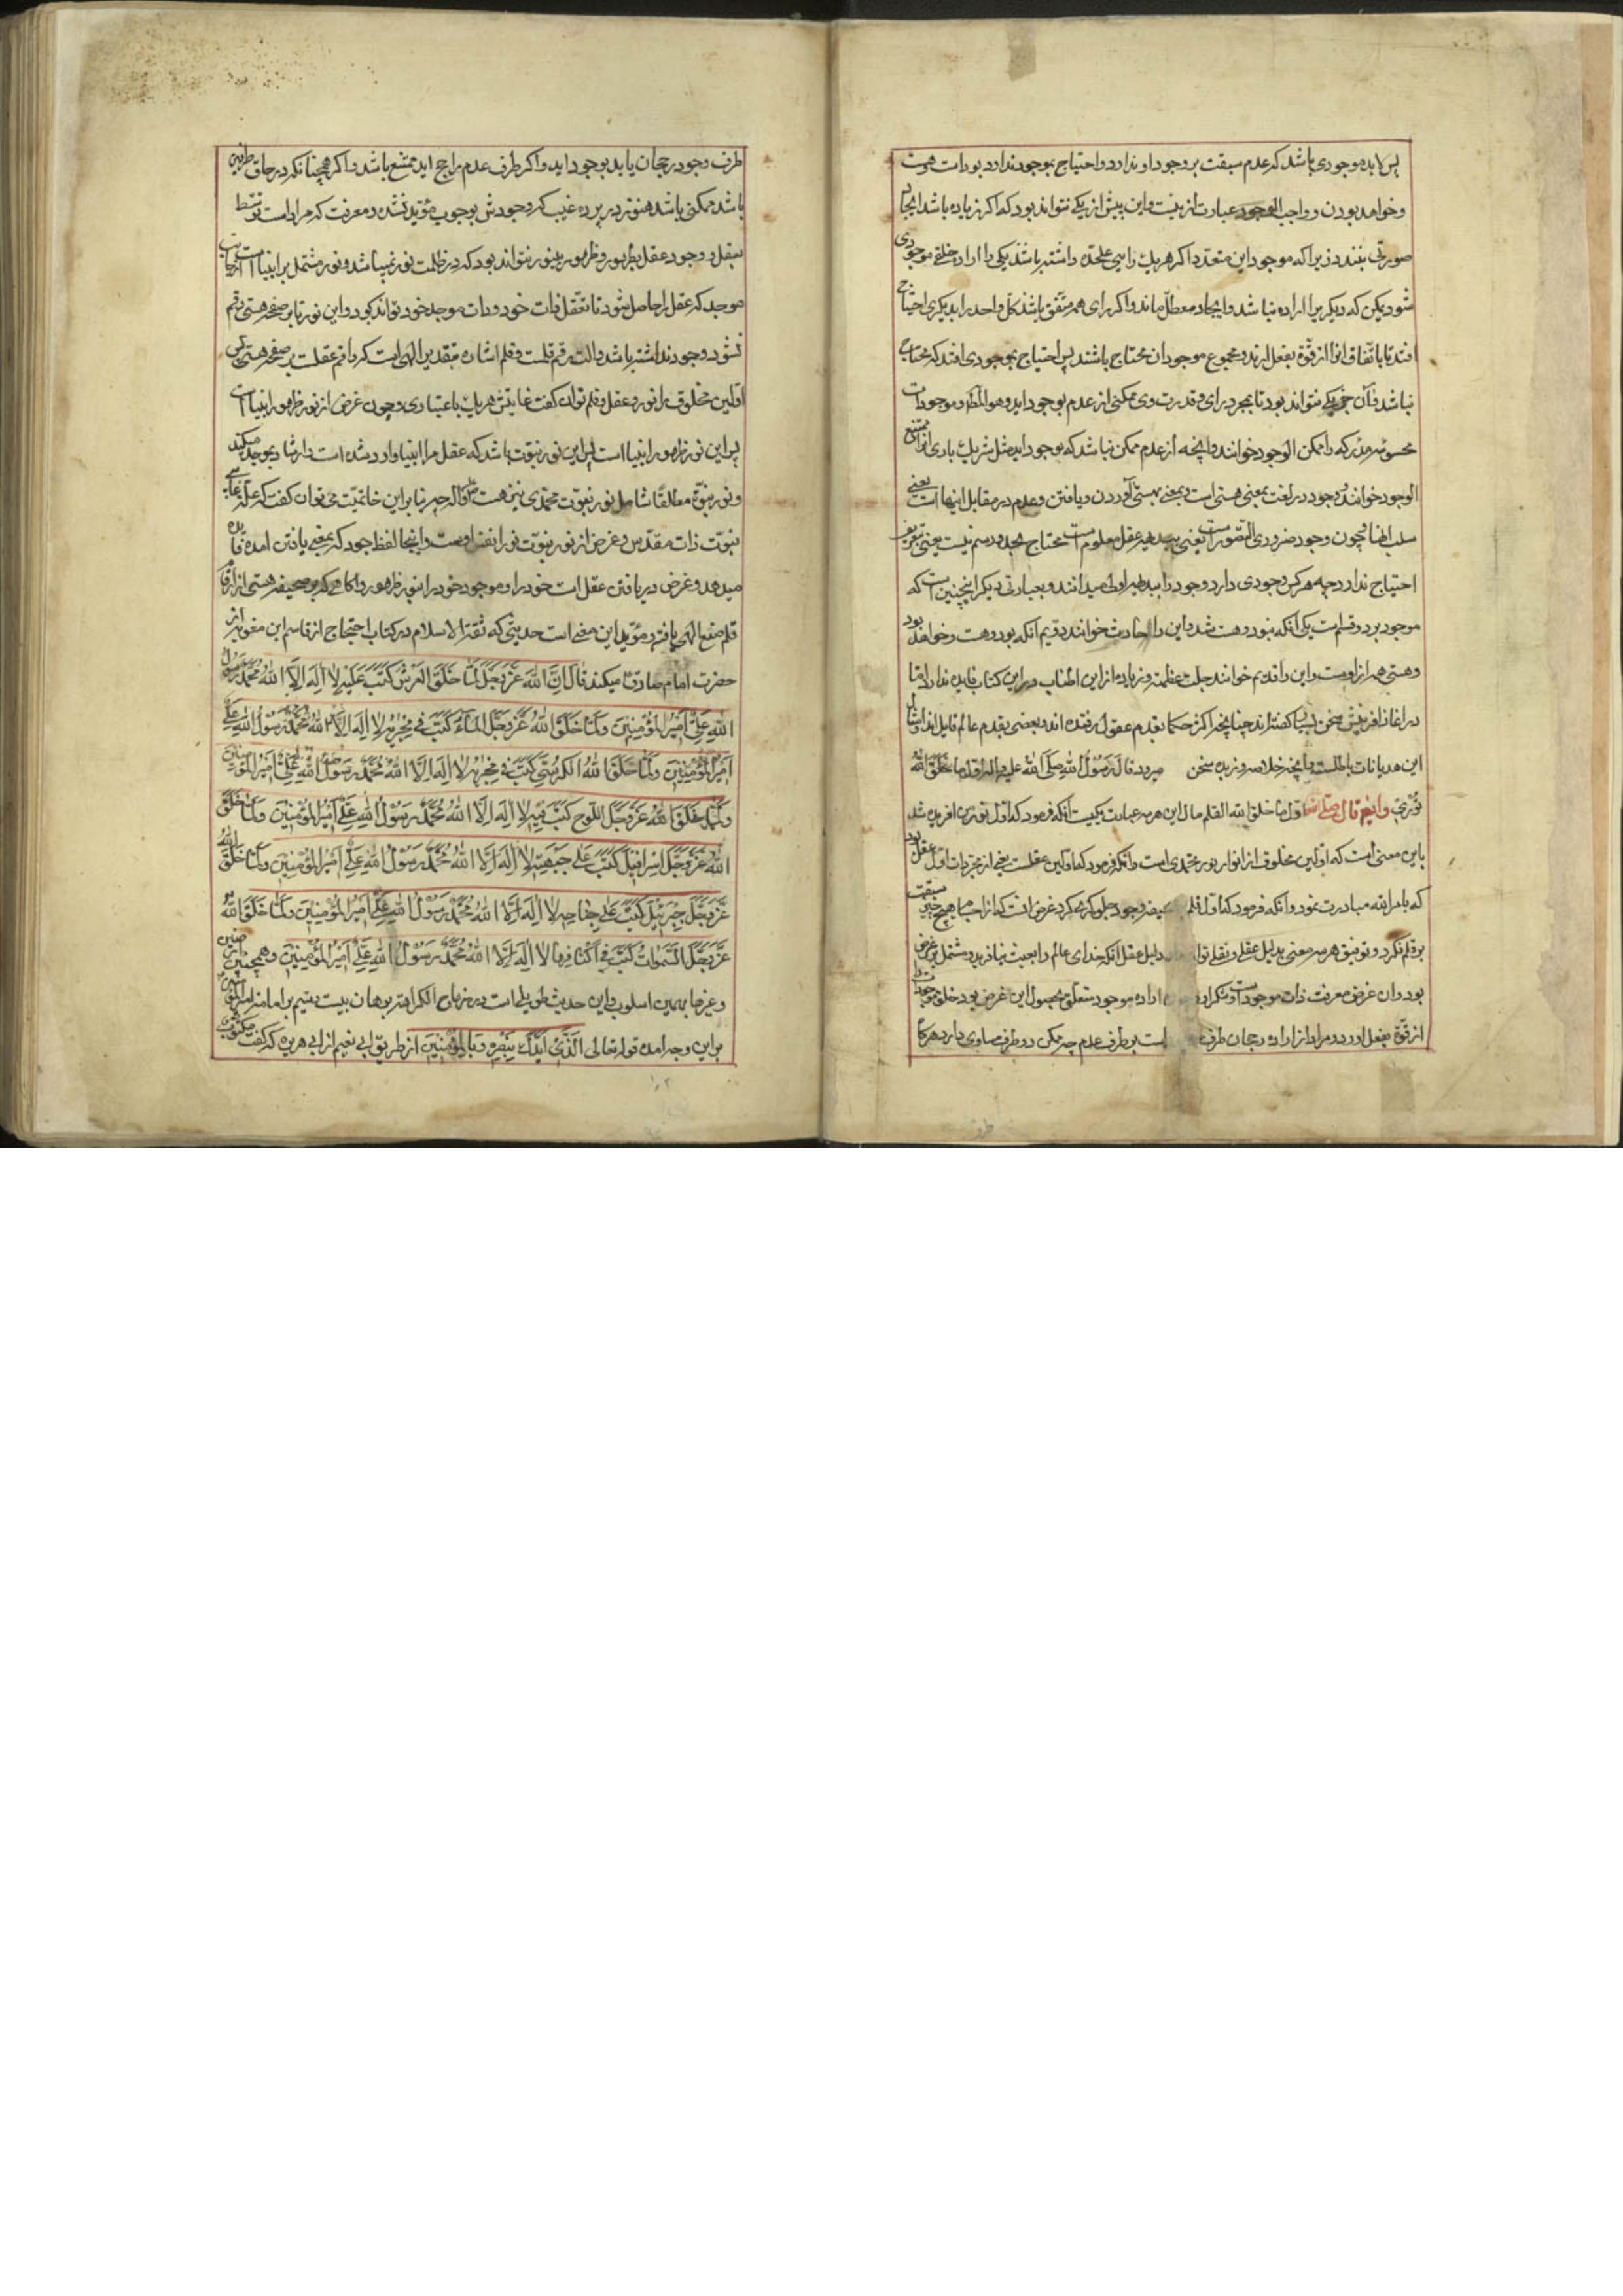 پس لابد موجودی باشد که عدم سبقت بر وجود او ندارد و احتیاج بموجود ندارد بود است هست
و خواهد بودن و واجب الوجود عبارت ازینست و این بیش از یکی نتواند بود که اگر زیاده باشد ایجاد
صورتی نبندد زیرا که موجد این متعدد اگر هر یک رایی علیحده داشته باشند یکی را اراده خلق موجودی
شود یمکن که دیگریرا اراده نباشد و ایجاد معطل ماند و اگر رای همه متفق باشد کل واحد را بدیگری احتیاج
افتد تا باتفاق آنرا از قوة بفعل آرند و مجموع موجودان محتاج باشند پس احتیاج بموجودی افتد که محتاج
نباشد و آن جز یکی نتواند بود تا بمجرد رای و قدرت وی ممکنی از عدم بوجود آید و هو المط و موجودات
محسوسه مدرکه را ممکن الوجود خوانند و آنچه از عدم ممکن نباشد که بوجود آید مثل شریک باری آنرا ممتنع
الوجود خوانند و وجود در لغت بمعنی هستی است و بمعنی بهستی آوردن و یافتن و عدم در مقابل اینها است یعنی
سلب اینها و چون وجود ضروری التصور است یعنی ببدیهه عقل معلوم است محتاج بحد و رسم نیست یعنی بتعریف
احتیاج ندارد چه هر کس وجودی دارد وجود را ببدیهه اولی میدانند و بعبارتی دیگر اینچنین است که
موجود بر دو قسم است یکی آنکه نبود و هست شد و این را حادث خوانند دویم آنکه بود و هست و خواهد بود
و هستی همه از اوست و این را قدیم خوانند جلت عظمته و زیاده از این اطناب در این کتاب فایده ندارد و تا
در آغاز آفرینش سخن بسیار گفته اند چنانچه اکثر حکما بقدم عقول رفته اند و بعضی بقدم عالم قایل اند و امثال
این هذیانات باطلست و آنچه خلاصه و زبده سخن میرود قال رسول الله صلی الله علیه و اله اول ما خلق الله
نوری و ایضا قال صلی الله اول ما خلق الله القلم مآل این هر سه عبارت یکیست آنکه فرمود که اول نور من آفریده شد
باین معنی است که اولین مخلوق از انوار نور محمدی است و آنکه فرمود که اولین عقلست یعنی از مجردات اول عقل بود
که بامر الله مبادرت نمود و آنکه فرمود که اول قلم وجود جلوگر کرد غرض آنست که از اجسام هیچ چیز سبقت
بر قلم نگرد و توفیق هر سه معنی بدلیل عقلی و نقلی توان دلیل عقل آنکه خدای عالم را بعبث نیافرید و مشتمل بر غرض
بود و آن غرض معرفت ذات موجود است و اراده موجود متعلق بحصول این غرض بود خلق موجود را
از قوة بفعل آورد و مراد از اراده رجحان طرف است بر طرف عدم چه ممکن دو طرف مساوی دارد هرگاه
طرف وجود رجحان یابد بوجود آید و اگر طرف عدم راجح آید ممتنع باشد و اگر همچنانکه در حاق طرفین
باشد ممکنی باشد هنوز در پرده غیب که وجودش بوجوب مؤید نشده و معرفت که مراد است توسط
بعقل و وجود عقل بظهور و ظهور بینور نتواند بود که در ظلمت نور نمیباشد و نور مشتمل بر انبیا است از جانب
موجد که عقل را حاصل شود تا تعقل ذات خود و ذات موجد خود تواند نمود و این نور تا بر صفحه هستی رقم
نشود وجود نداشته باشد و آلت رقم قلمست و قلم اشاره بتقدیر الهی است که راقم عقلست بر صفحه هستی پس
اولین مخلوق را نور و عقل و قلم توان گفت غایتش هر یک باعتباری و چون غرض از نور ظهور انبیا است
پس این نور ظهور انبیا است پس این نور نبوت باشد که عقل مر انبیا وارد شده است و ارشاد بموجد میکند
و نور نبوة مطلقا شامل نور نبوت محمدی نیز هست ص و اله چه بنابر این خاتمیت می توان گفت که علة غایی
نبوت ذات مقدس و غرض از نور نبوت نور انفس اوست و اینجا لفظ جود که بمعنی یافتن آمده فایده
میدهد و غرض دریافتن عقل است خود را و موجود خود را بنور ظهور و آگاهی که بر صحیفه هستی از ارقام
قلم صنع الهی یافته و مؤید این معنی است حدیثی که ثقة الاسلام در کتاب احتجاج از قاسم ابن معویه از
حضرت امام صادق ع میکند قال ان الله عز و جل لما خلق العرش کتب علیه لا اله الا الله محمد رسول
الله علی امیر المؤمنین و لما خلق الله عز و جل الماء کتب فی مجریه لا اله الا الله محمد رسول الله علی
امیر المؤمنین و لما خلق الله الکرسی کتب فی مجریه لا اله الا الله محمد رسول الله علی امیر المؤمنین
و لما خلق الله عز و جل اللوح کتب فیه لا اله الا الله محمد رسول الله علی امیر المؤمنین و لما خلق
الله عز و جل اسرافیل کتب علی جبهته لا اله الا الله محمد رسول الله علی امیر المؤمنین و لما خلق الله
عز و جل جبرئیل کتب علی جناحه لا اله الا الله محمد رسول الله علی امیر المؤمنین و لما خلق الله
عز و جل السموات کتب فی اکنافها لا اله الا الله محمد رسول الله علی امیر المؤمنین و همچنین
و غیرها بهمین اسلوب و این حدیث طویل است برهان بیست بیتیم بر امامت امیر المؤمنین
بر این وجه آمده قوله تعالی الذی ایدک بنصره و بالمؤمنین از طریق ابی نعیم از ابی هریره که گفت مکتوب